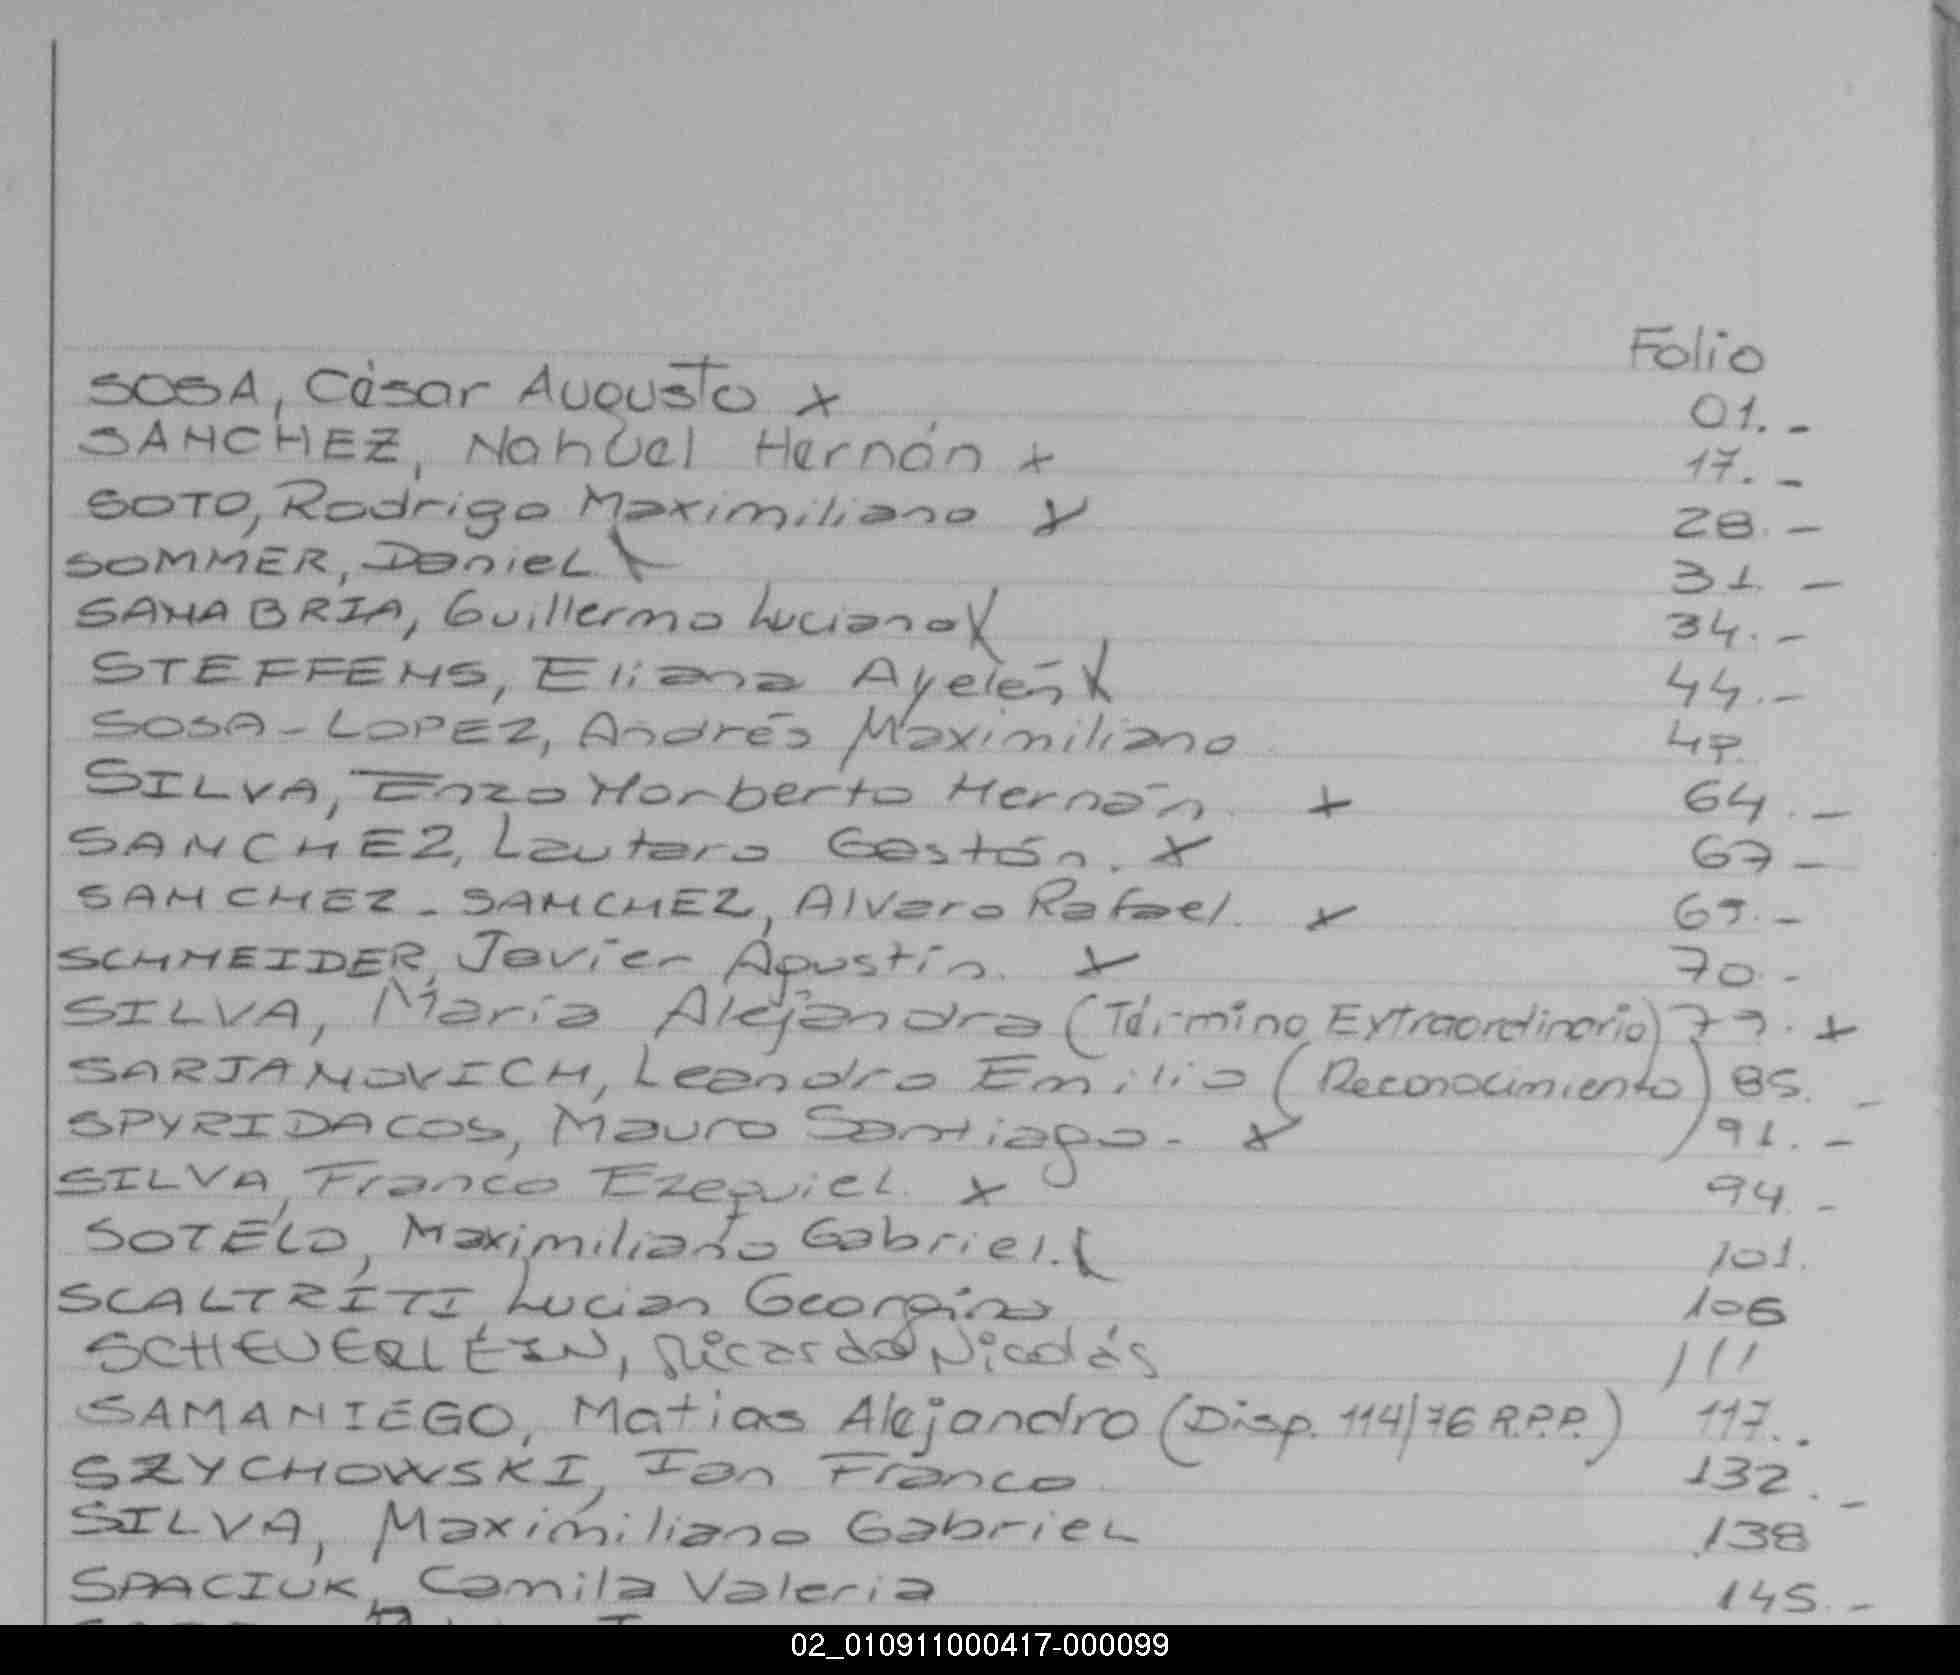 Folio
SOSA, César Augusto x 01.-
SANCHEZ, Nahuel Hernán x 17.-
SOTO, Rodrigo Maximiliano x 28.-
SOMMER, Daniel x 31.-
SANABRIA, Guillermo Luciano x 34.-
STEFFENS, Eliana Ayelén x 44.-
SOSA-LOPEZ, Andrés Maximiliano
SILVA, Enzo Norberto Hernán x 64.-
SANCHEZ, Lautaro Gastón. x 67-
SANCHEZ-SANCHEZ, Alvaro Rafael. x 69.-
SCHNEIDER, Javier Agustín. x 70.-
SILVA, María Alejandra (Término Extraordinario) 79. x
SARJANOVICH, Leandro Emilio (Reconocimiento) 85.-
SPYRIDACOS, Mauro Santiago.- x 91.-
SILVA, Franco Ezequiel. x 94.-
SOTELO, Maximiliano Gabriel. x 101.
SCALTRITI, Lucian Georgino 106
SCHEUERLEIN, Ricardo Nicolás 111
SAMANIEGO, Matias Alejandro (Disp. 114/76 R.P.P.) 117..
SZYCHOWSKI, Ian Franco 132.-
SILVA, Maximiliano Gabriel 138
SPACIUK, Camila Valeria 145.-
02_010911000417-000099